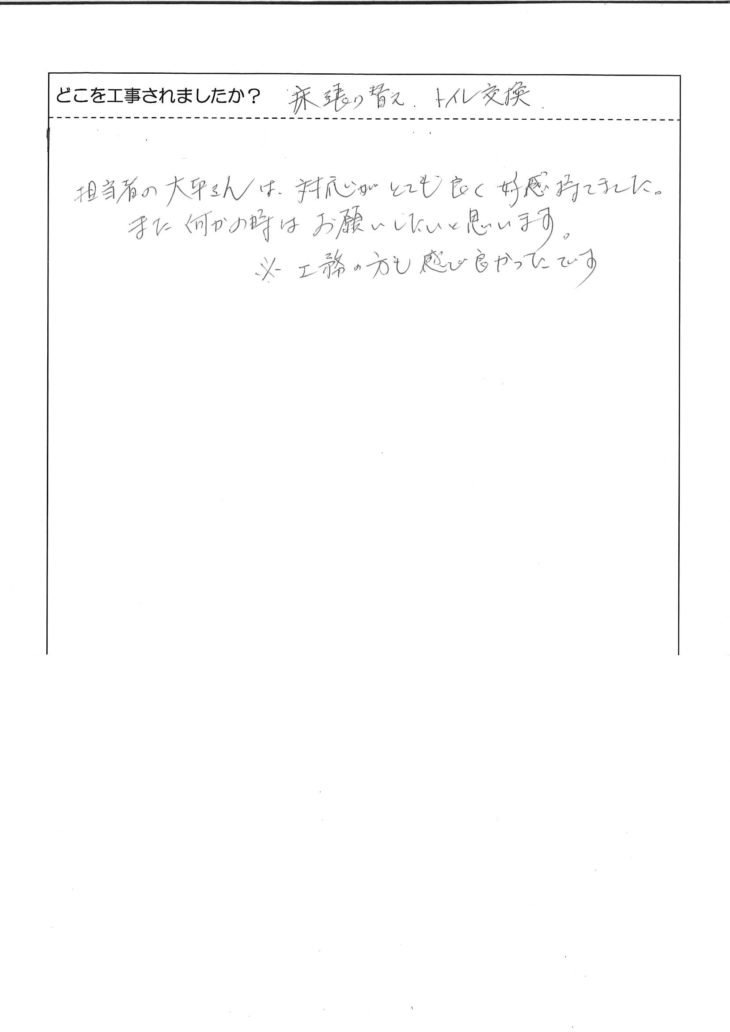 どこを工事されましたか? 床張り替え．トイレ交換．
担当者の大平さんは、対応がとても良く好感持てました。
また何かの時はお願いしたいと思います。
※工務の方も感じ良かったです